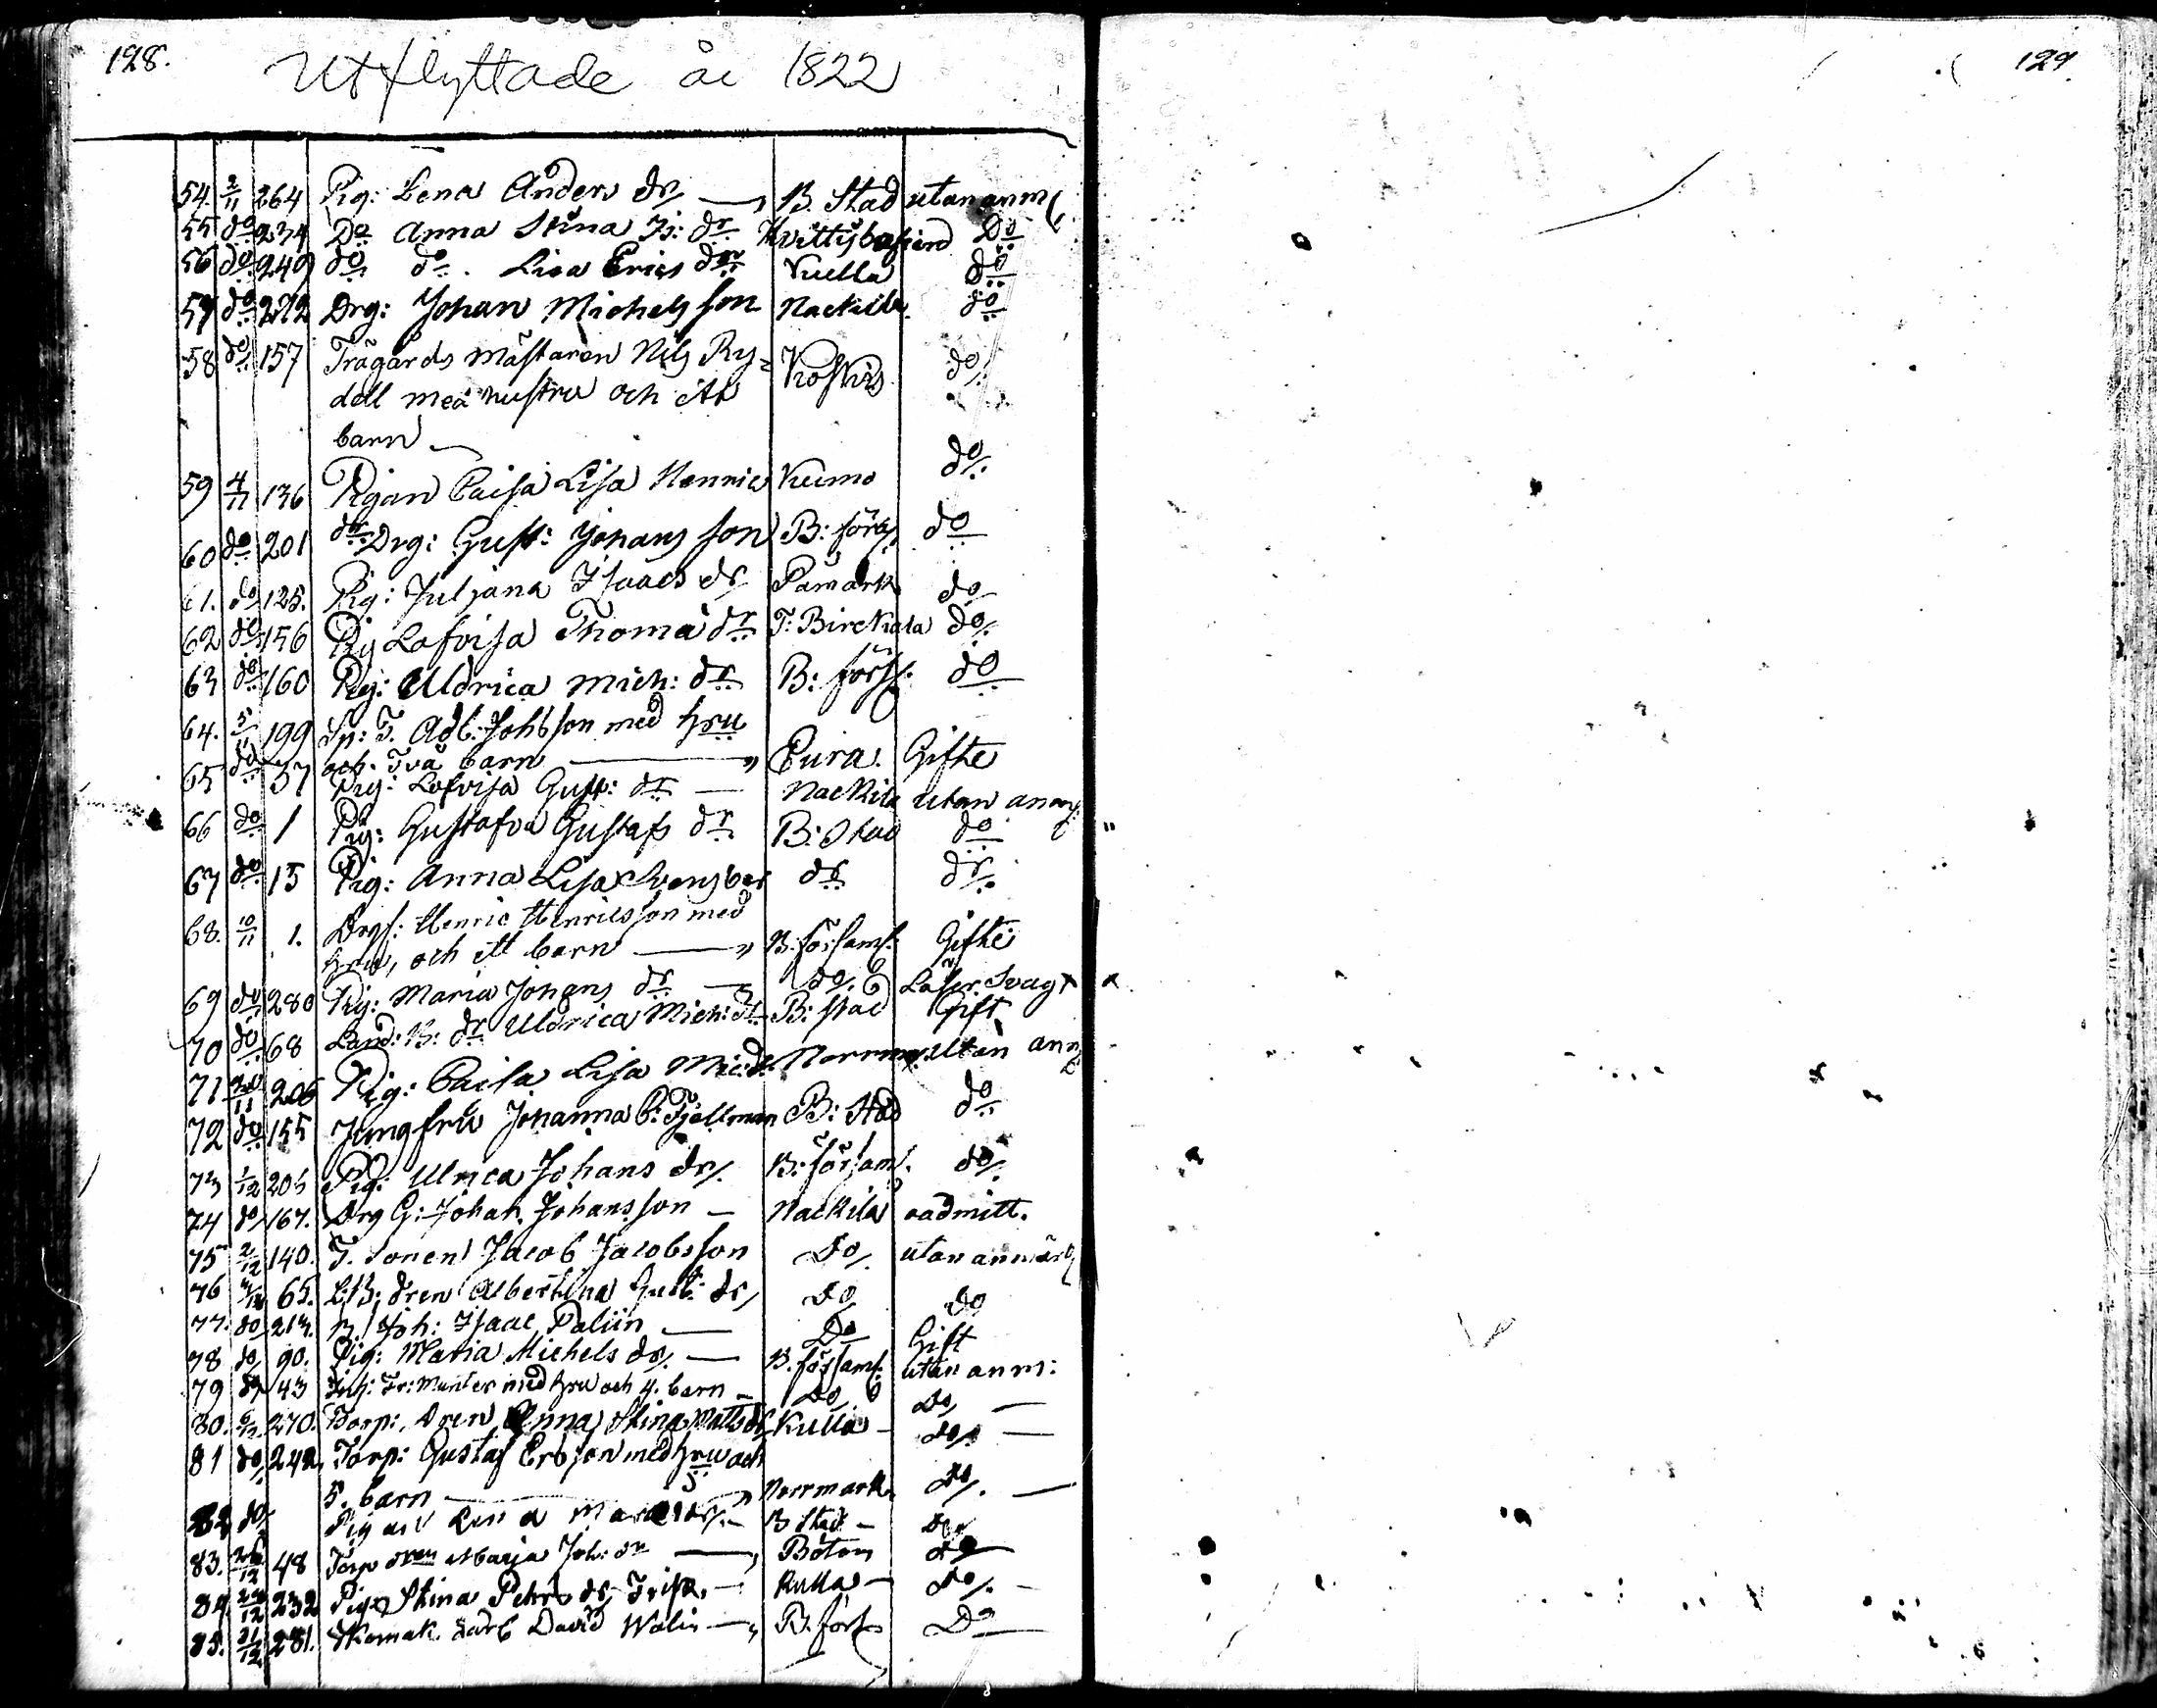 128.
Utflyttade år 1822
129.
54. 2/11 264 Pig: Lena Anders dr B. Stad utan anm
55 do 234 Do Anna Stina Is: dr Do
56 do 249 do do. Lisa Erics dr Kulla do
57 do 272 Drg: Johan Michelsson Nackila do
58 do 157 Trägårds mästaren Nils Ry= do
dell med hustru och ett
barn
59 4/11 136 Pigan Caisa Lisa Henrics Kumo do
60 do 201 dr Drg: Gust: Johansson B: förs. do
61. do 125. Pig: Juljana Isaacs dr Påmark do
62 do 156 Pig Lofvisa Thoma dr T: Birckala do
63 do 160 Pig: Uldrica Mich: dr B: förs. do
64. 5/11 199 Sp: T. Adl: Johsson med hru
och Två barn Eura Gifte
65 do 37 Pig: Lofvisa Gust: dr Nackila utan anm
66 do 1 Pig: Gustafva Gustafs dr B: Stad do
67 do 15 Pig: Anna Lisa do
68. 10/11 1. Henric Henricsson med
hru, och ett barn B. församl: Gifte
69 do 280 Pig: Maria Johans dr do Läser Svagt
70 do 68 Land: B: dr Uldrica Mich: dr B: stad Gift
71 206 Pig: Caisa Lisa Norrm. utan anm
72 do 155 Jungfru Johanna C: Fjellman B: Stad do
73 1/12 205 Pig: Ulrica Johans dr. B: församl. do
74 do 167. Drg G: Johan Johansson Nackila oadmitt.
75 2/12 140. T. sonen Jacob Jacobsson Do utan anmärk
76 65. L:B: dren Albertina Gust: dr Do Do
77. do 213. Joh: Isaac Palin Do Gift
78 do 90. Pig: Maria Michels dr. B. församl: utan anm:
79 do 43 Inh: Fr: Munter med hru och 4. barn Do Do
80. 6/12 270. Torp: dren Anna Stina Matts dr Kulla do
81 do 242 Torp: Gustaf Ersson med hru och
5. barn Norrmark Do.
82 do Pigan Lena B Stad Do
83. 48 Torp dren Maja Joh: dr do
84. 232 Pig Stina Pehrs dr Kulla do.
85. 31/12 281. David Walin B. förs Do